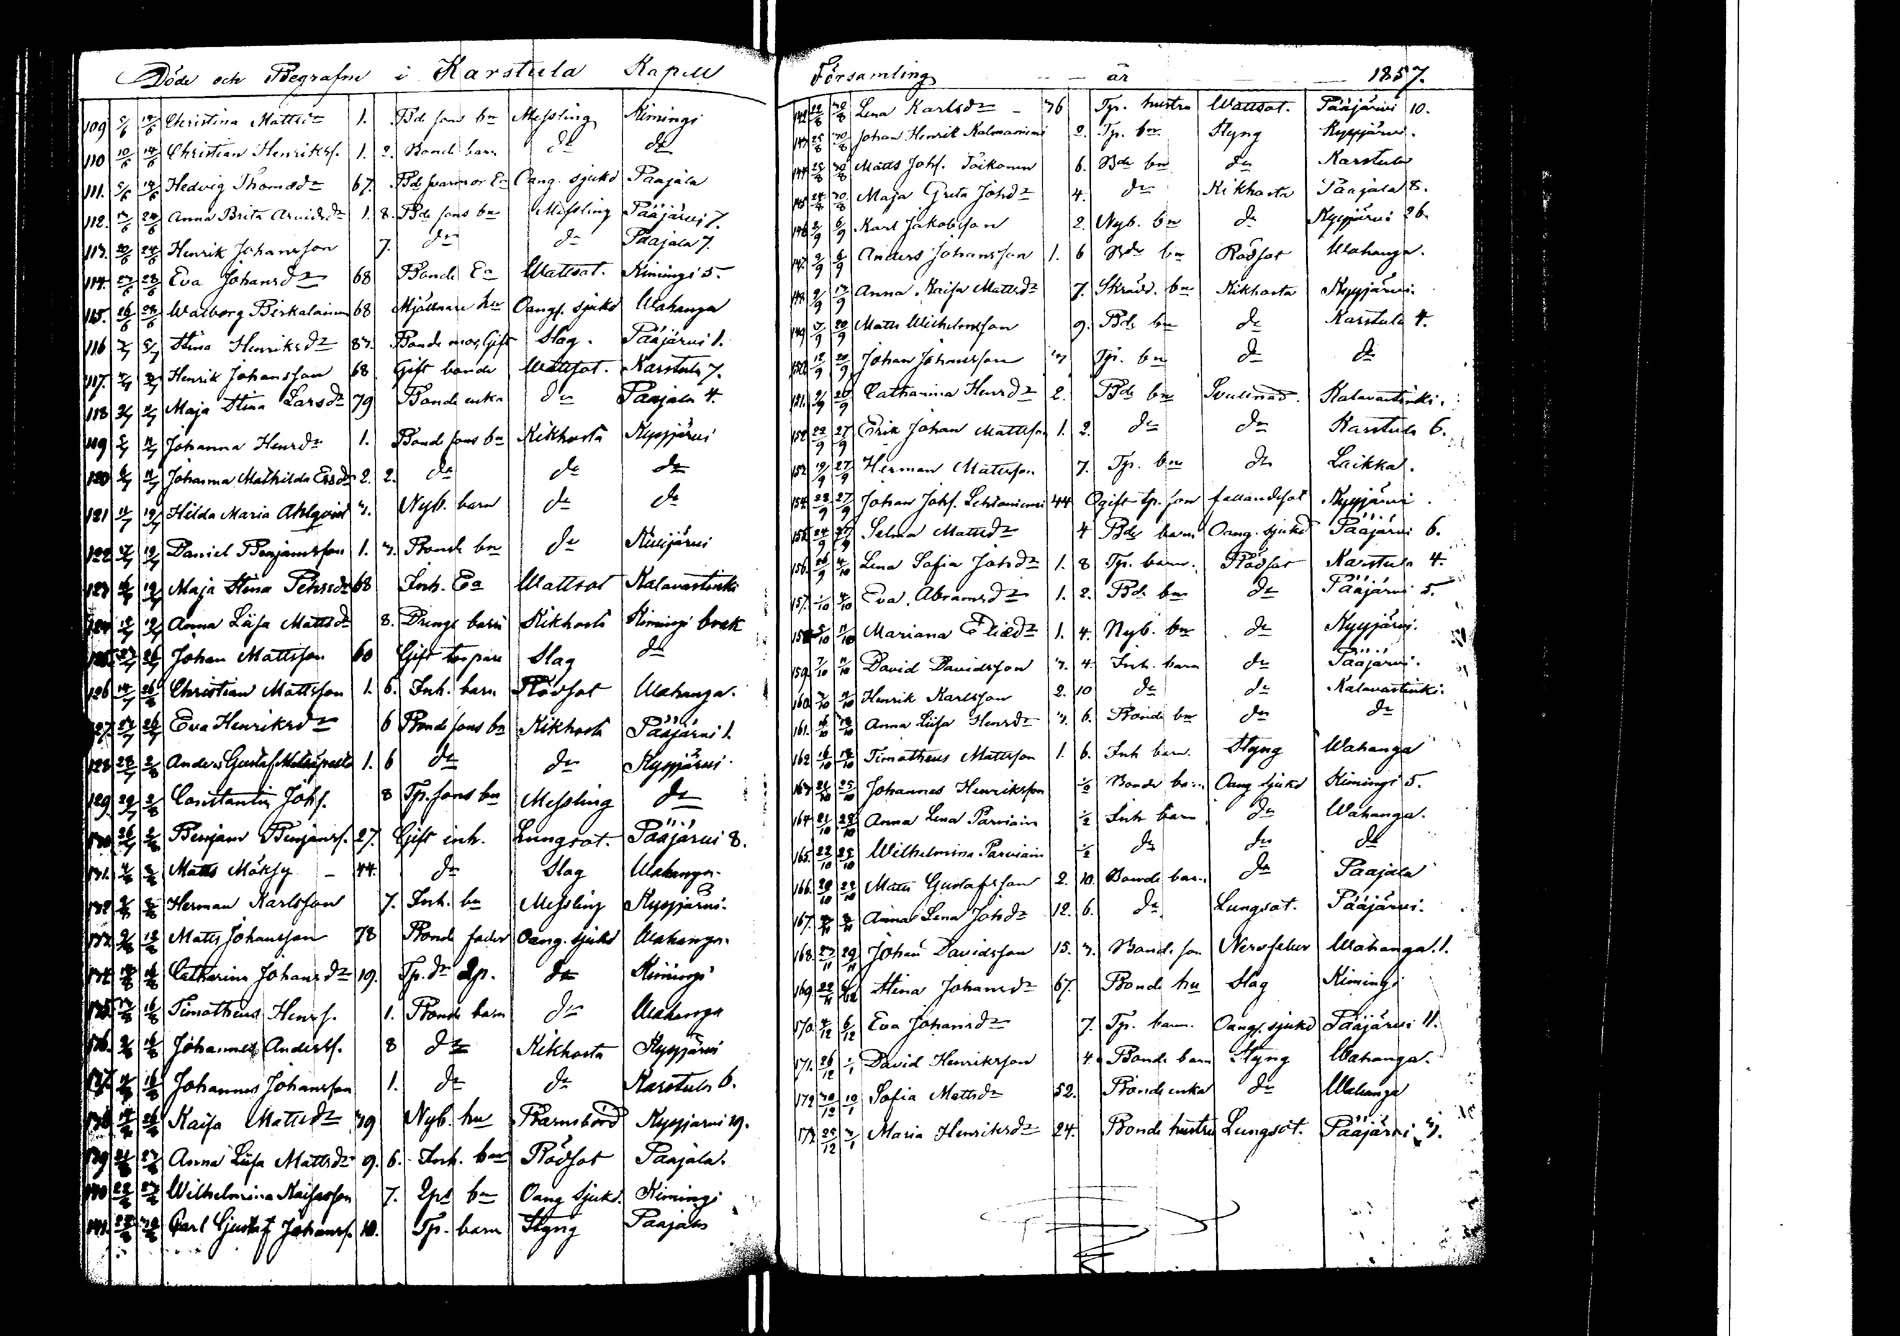 Döde och Begrafne i Karstula Kapell
109 5/6 14/6 Christina Mattsd:r 1. Bd sons bn Messling Kimingi
110 10/6 14/6 Christian Henriksf. 1. 2. Bonde barn d:o d:o
111. 5/6 14/6 Hedvig Thomasd:r 67. Oang. sjukd Paajala
112. Anna Brita Arvidsd:r 1. 8. Bd sons bn Messling Pääjärvi 7.
113. 20/6 24/6 Henrik Johansson 7. d:o d:o Paajala 7.
114. 23/6 28/6 Eva Johansd:r 68 Bonde Ea Wattsot. Kimingi 5.
115. 26/6 28/6 Walborg Piskalainen 68 Mjölnare hu Oang. sjukd Wahanga
116 5/7 Stina Henriksd:r 87. Bonde mor, Gift Slag. Pääjärvi 1.
117. Henrik Johansson 68 Gift bonde Wattsot. Karstula 7.
118 Maja Stina Larsd:r 79 Bonde enka d:o Paajala 4.
119 Johanna Henrsd:r 1. Bond sons bn Kikhosta Kyyjärvi
120 Johanna Mathilda Ersd:r 2. 2. d:o d:o d:o
121 11/7 19/7 Hilda Maria Ahlqvist 3. Nyb. barn d:o d:o
122 17/7 19/7 Daniel Benjamsson 1. 3. Bonde bn d:o Kyyjärvi
123 19/7 Maja Stina Pehrsd:r 68 Inh. Ea Wattsot Kalavastinki
124 19/7 Anna Liisa Mattsd:r 8. Drengs barn Kikhosta Kimingi
125. 26/7 Johan Mattsson 60 Gift torpare Slag d:o
126 14/7 26/7 Christian Mattsson 1. 6. Inh. barn Rödsot Wahanga.
127. 23/7 26/7 Eva Henriksd:r 6 Bonde sons bn Kikhosta Pääjärvi 1.
128 28/7 2/8 Anders Gustaf 1. 6 d:o d:o Kyyjärvi.
129. 29/7 2/8 Constantin Johs. 8 Tp. sons bn Messling d:o
130 26/7 2/8 Benjam Benjamsf. 27. Gift inh. Lungsot. Pääjärvi 8.
131. Matts Möksy – 44. d:o Slag Wahanga.
132 Herman Karlsson 7. Inh. bn Messling Kyyjärvi.
133. Matts Johansson 78 Bonde fader Oang. sjukd Wahanga.
134 16/8 Catharina Johansd:r 19. Tp. d:r d:o Kimingi
135 16/8 Timotheus Henrsf. 1. Bonde barn d:o Wahanga
136. 16/8 Johannes Andersf. 8 d:o Kikhosta Kyyjärvi
137. 16/8 Johannes Johansson 1. d:o d:o Karstula 6.
138 Kaisa Mattsd:r 39 Nyb. hu Barnsbörd Kyyjärvi 19.
139 Anna Liisa Mattsd:r 9. 6. Inh. bn Rödsot Paajala.
140 Wilhelmina Kaisasson 7. bn Oang sjukd. Kimingi
141. Carl Gustaf Johansf. 10. Tp. barn Styng Paajala
Församling år 1857.
142 22/8 30/8 Lena Karlsd:r – 76 Tp. hustru Wattsot. Pääjärvi 10.
143 25/8 30/8 Johan Henrik Kalmariemi 2. Tp. bn Styng Kyyjärvi.
144 28/8 30/8 Matts Johs. Toikonen 6. Bde bn d:o Karstula
145 30/8 Maja Greta Johsd:r 4. d:o Kikhosta Paajala 8.
146 2/9 6/9 Karl Jakobsson 2. Nyb. bn d:o Kyyjärvi 26.
147. 2/9 6/9 Anders Johansson 1. 6 Bde bn Rödsot Wahanga.
148. 9/9 13/9 Anna Kaisa Mattsd:r 7. Skräd. bn Kikhosta Kyyjärvi.
149 20/9 Matts Wilhelmsson 9. Bde bn d:o Karstula 4.
150 12/9 20/9 Johan Johansson 3 Tp. bn d:o d:o
151. 20/9 Catharina Henrsd:r 2. Bde bn Svullnad. Kalavastinki.
152 22/9 27/9 Erik Johan Mattsson 1. 2. d:o d:o Karstula 6.
153 19/9 27/9 Herman Mattsson. 7. Tp. bn d:o Leikka.
154. 22/9 27/9 Johan Johs. Lehtoniemi 44 Ogift tp. son fallandesot Kyyjärvi.
155. 24/9 27/9 Selma Mattsd:r 4 Bde barn Oang. sjukd Pääjärvi 6.
156. 26/9 4/10 Lena Sofia Johsd:r 1. 8 Tp. barn. Rödsot Karstula 4.
157. 1/10 4/10 Eva Abramsd:r 1. 2. Bde bn d:o Pääjärvi 5.
158 5/10 11/10 Mariana Eliasd:r 1. 4. Nyb. bn d:o Kyyjärvi.
159. 7/10 11/10 David Davidsson 3. 4. Inh. barn d:o Pääjärvi.
160. Henrik Karlsson 2. 10 d:o d:o Kalavastinki.
161. 18/10 Anna Liisa Henrsd:r 3. 6. Bonde bn d:o d:o
162 16/10 18/10 Timotheus Mattsson 1. 6. Inh barn. Styng Wahanga
163 21/10 25/10 Johannes Henriksson 1/2 Bonde barn Oang sjukd Kimingi 5.
164. 21/10 25/10 Anna Lena Parviain 1/2 Inh barn d:o Wahanga.
165. 22/10 25/10 Wilhelmina Parviain 1/2 d:o d:o d:o
166. Matts Gustafsson 2. 10. Bonde barn d:o Paajala
167. Anna Lena Johsd:r 12. 6. d:o Lungsot. Pääjärvi.
168. 23/11 29/11 Johan Davidsson 15. 3. Bonde son Nervfeber Wahanga 1.
169. Stina Johansd:r 67. Bonde hu Slag Kimingi
170. 4/12 6/12 Eva Johansd:r 7. Tp. barn. Oang. sjukd Pääjärvi 11.
171. 26/12 1/1 David Henriksson 4 Bonde barn Styng Wahanga.
172 30/12 10/1 Sofia Mattsd:r 52. Bonde enka d:o Wahanga
173. 25/12 3/1 Maria Henriksd:r 24. Bonde hustru Lungsot. Pääjärvi 3.